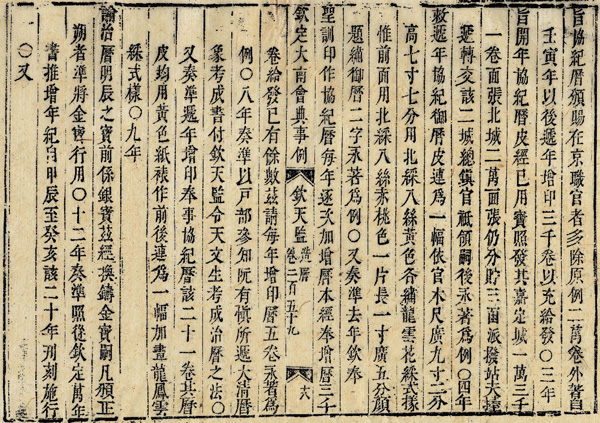 旨協紀曆頒賜在京職官者多除原例二萬卷外着自
壬寅年以後遞年增印三千卷以充給發〇三年
旨開年協紀曆皮經已用寶照發其嘉定城一萬三千
一卷面張北城二萬面張仍分貯三函派撥站夫擡
遞轉交該二城總鎮官祇領嗣後永著爲例〇四年
敕遞年協紀御曆皮連爲一幅依官木尺廣九寸二分
高七寸七分用北綵八絲黃色各繡龍雲花綵式樣
惟前面用北綵八絲赤桃色一片長一寸廣五分顔
題繡御曆二字永著爲例〇又奏準去年欽奉
聖訓印作協紀曆每年逐次加增曆本經奉增曆三千
欽定大南會典事例 欽天監 治曆 卷二百五十九 六
卷給發已有餘數茲請每年增印曆五卷永著爲
例〇八年奏準以戶部參知阮有慎所遞大清曆
象考成書付欽天監令天文生考成治曆之法〇
又奏準遞年增印奉事協紀曆該二十一卷其曆
皮均用黃色紙裱作前後連爲一幅加畫龍鳳雲
綵式樣〇九年
諭治曆明辰之寶前係銀寶茲經換鑄金寶嗣凡頒正
朔者準將金寶行用〇十二年奏準照從欽定萬年
書推增年紀自甲辰至癸亥該二十年刋刻施行
〇又